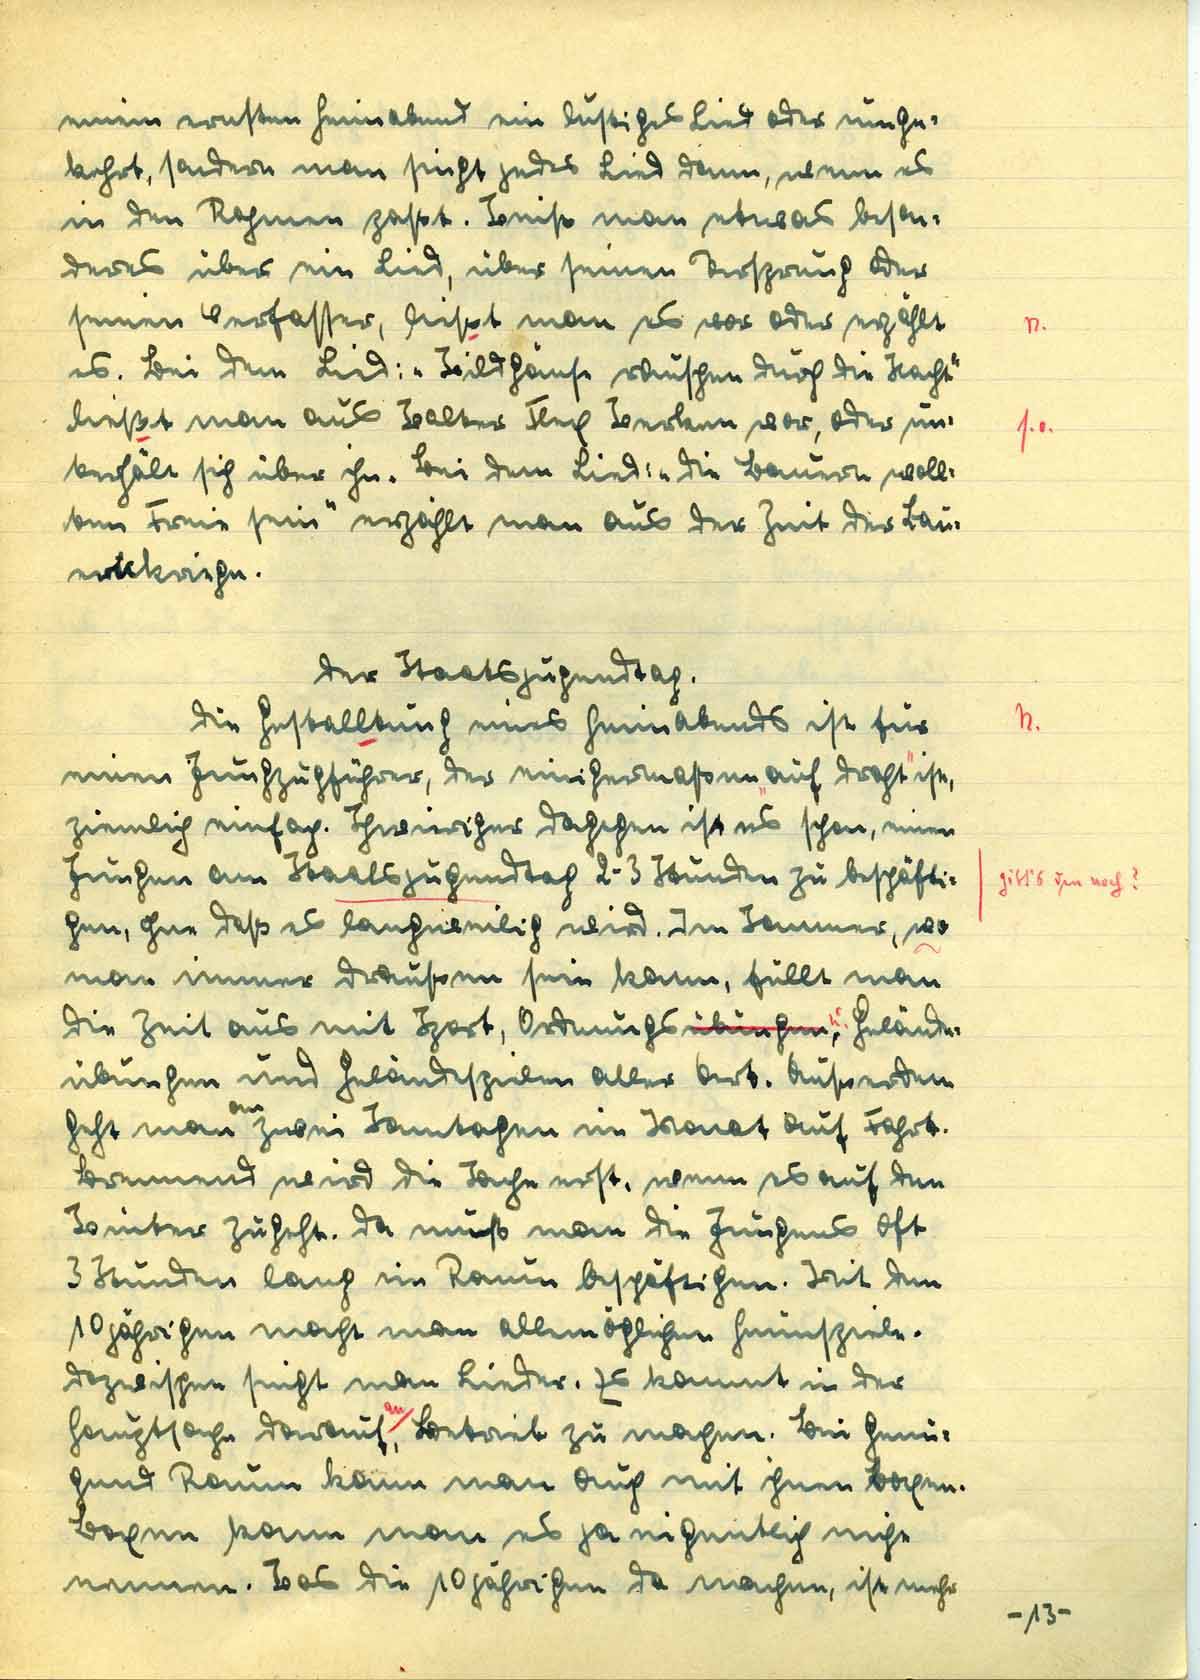 einem ernsten Heimabend ein lustiges Lied oder umge-
kehrt, sondern man singt jedes Lied dann, wenn es
in den Rahmen passt. Weiß man etwas beson-
deres über ein Lied, über seinen Ursprung oder
seinen Verfasser, ließt man es vor oder erzählt
n.
es. Bei dem Lied: „Wildgänse rauschen durch die Nacht“
ließt man aus Walter Flex Werken vor, oder un-
s.o.
terhält sich über ihn. Bei dem Lied: „die Bauern woll-
ten Freie sein“ erzählt man aus der Zeit der Bau-
ernkriege.
Der Staatsjugendtag.
Die Gestalltung eines Heimabends ist für
n.
einen Jungzugführer, der einigermaßen „auf Draht“ ist,
ziemlich einfach. Schwieriger dagegen ist es schon, einen
Jungen am Staatsjugendtag 2-3 Stunden zu beschäfti-
gibt's den noch?
gen, ohne daß es langweilig wird. Im Sommer, wo
man immer draußen sein kann, füllt man
die Zeit aus mit Sport, Ordnungsübungen, Gelände-
übungen und Geländespielen aller Art. Außerdem
geht man an zwei Sonntagen im Monat auf Fahrt.
Brennend wird die Sache erst, wenn es auf den
Winter zugeht. Da muß man die Jungens oft
3 Stunden lang im Raum beschäftigen. Mit den
10jährigen macht man allemöglichen Heimspiele.
Dazwischen singt man Lieder. Es kommt in der
Hauptsache darauf an, Betrieb zu machen. Bei genü-
gend Raum kann man auch mit ihnen Boxen.
Boxen kann man es ja eigentlich nicht
nennen. Was die 10jährigen da machen, ist mehr
-13-